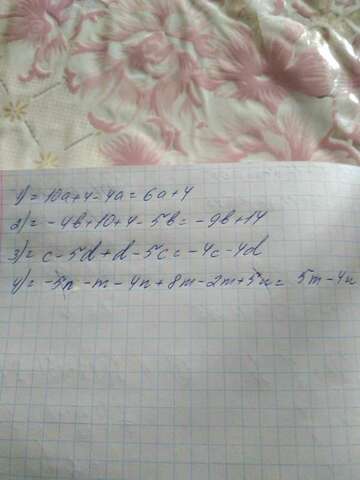 1) = 10a+4-4a = 6a+4
2) = -4b+10+4-5b = -9b+14
3) = c-5d+d-5c = -4c-4d
4) = -5n-m-4n+8m-2m+5n = 5m-4n